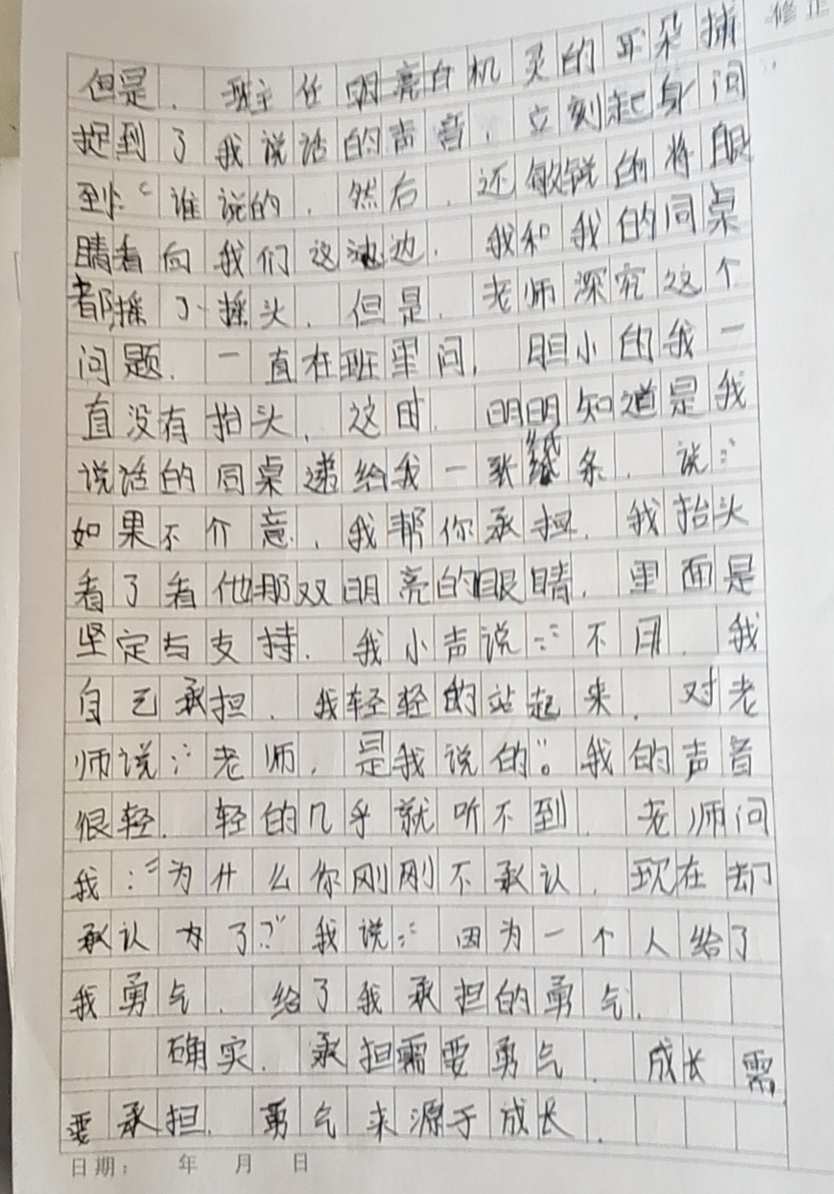 修正
但是，班主任明亮白机灵的耳朵捕
捉到了我说话的声音，立刻起身问
到：“谁说的，然后，还敏锐的将眼
睛看向我们这边，我和我的同桌
都摇了摇头，但是，老师深究这个
问题，一直在班里问，胆小的我一
直没有抬头，这时，明明知道是我
说话的同桌递给我一张纸条，说：“
如果不介意，我帮你承担，我抬头
看了看他那双明亮的眼睛，里面是
坚定与支持，我小声说：“不用，我
自己承担，我轻轻的站起来，对老
师说：“老师，是我说的”。我的声音
很轻，轻的几乎就听不到，老师问
我：“为什么你刚刚不承认，现在却
承认为了？”我说：“因为一个人给了
我勇气，给了我承担的勇气，
确实，承担需要勇气，成长需
要承担，勇气来源于成长，
日期： 年 月 日